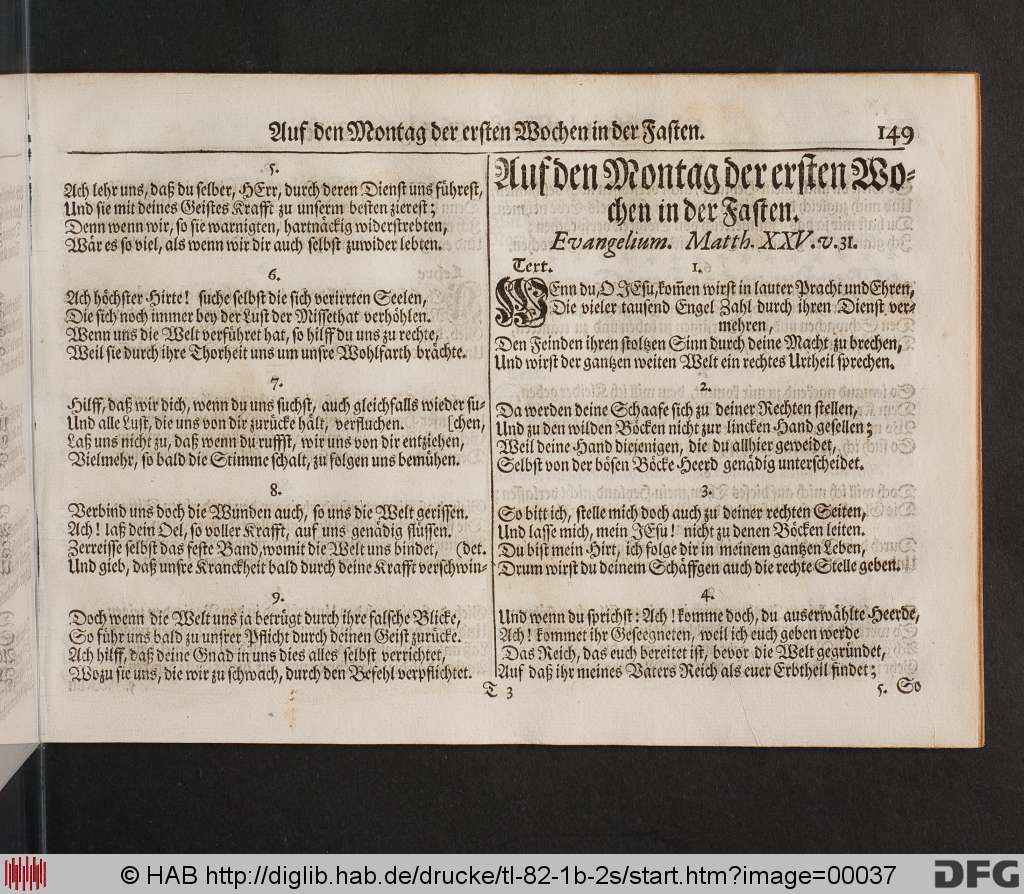 Auf den Montag der ersten Wochen in der Fasten. 149
5.
Ach lehr uns, daß du selber, HErr, durch deren Dienst uns führest,
Und sie mit deines Geistes Krafft zu unserm besten zierest;
Denn wenn wir, so sie warnigten, hartnäckig widerstrebten,
Wär es so viel, als wenn wir dir auch selbst zuwider lebten.
6.
Ach höchster Hirte! suche selbst die sich verirrten Seelen,
Die sich noch immer bey der Lust der Missethat verhöhlen.
Wenn uns die Welt verführet hat, so hilff du uns zu rechte,
Weil sie durch ihre Thorheit uns um unsre Wohlfarth brächte.
7.
Hilff, daß wir dich, wenn du uns suchst, auch gleichfalls wieder su-
Und alle Lust, die uns von dir zurücke hält, verfluchen. [chen,
Laß uns nicht zu, daß wenn du ruffst, wir uns von dir entziehen,
Vielmehr, so bald die Stimme schalt, zu folgen uns bemühen.
8.
Verbind uns doch die Wunden auch, so uns die Welt gerissen.
Ach! laß dein Oel, so voller Krafft, auf uns genädig flüssen.
Zerreisse selbst das feste Band, womit die Welt uns bindet, (det.
Und gieb, daß unsre Kranckheit bald durch deine Krafft verschwin-
9.
Doch wenn die Welt uns ja betrügt durch ihre falsche Blicke,
So führ uns bald zu unsrer Pflicht durch deinen Geist zurücke.
Ach hilff, daß deine Gnad in uns dies alles selbst verrichtet,
Wozu sie uns, die wir zu schwach, durch den Befehl verpflichtet.
Auf den Montag der ersten Wo-
chen in der Fasten.
Evangelium. Matth. XXV. v. 31.
Text. 1.
WEnn du, O JEsu, kom̃en wirst in lauter Pracht und Ehren,
Die vieler tausend Engel Zahl durch ihren Dienst ver-
mehren,
Den Feinden ihren stoltzen Sinn durch deine Macht zu brechen,
Und wirst der gantzen weiten Welt ein rechtes Urtheil sprechen.
2.
Da werden deine Schaafe sich zu deiner Rechten stellen,
Und zu den wilden Böcken nicht zur lincken Hand gesellen;
Weil deine Hand diejenigen, die du allhier geweidet,
Selbst von der bösen Böcke-Heerd genädig unterscheidet.
3.
So bitt ich, stelle mich doch auch zu deiner rechten Seiten,
Und lasse mich, mein JEsu! nicht zu denen Böcken leiten.
Du bist mein Hirt, ich folge dir in meinem gantzen Leben,
Drum wirst du deinem Schäffgen auch die rechte Stelle geben.
4.
Und wenn du sprichst: Ach! komme doch, du auserwählte Heerde,
Ach! kommet ihr Geseegneten, weil ich euch geben werde
Das Reich, das euch bereitet ist, bevor die Welt gegründet,
Auf daß ihr meines Vaters Reich als euer Erbtheil findet;
T 3 5. So
© HAB http://diglib.hab.de/drucke/tl-82-1b-2s/start.htm?image=00037
DFG